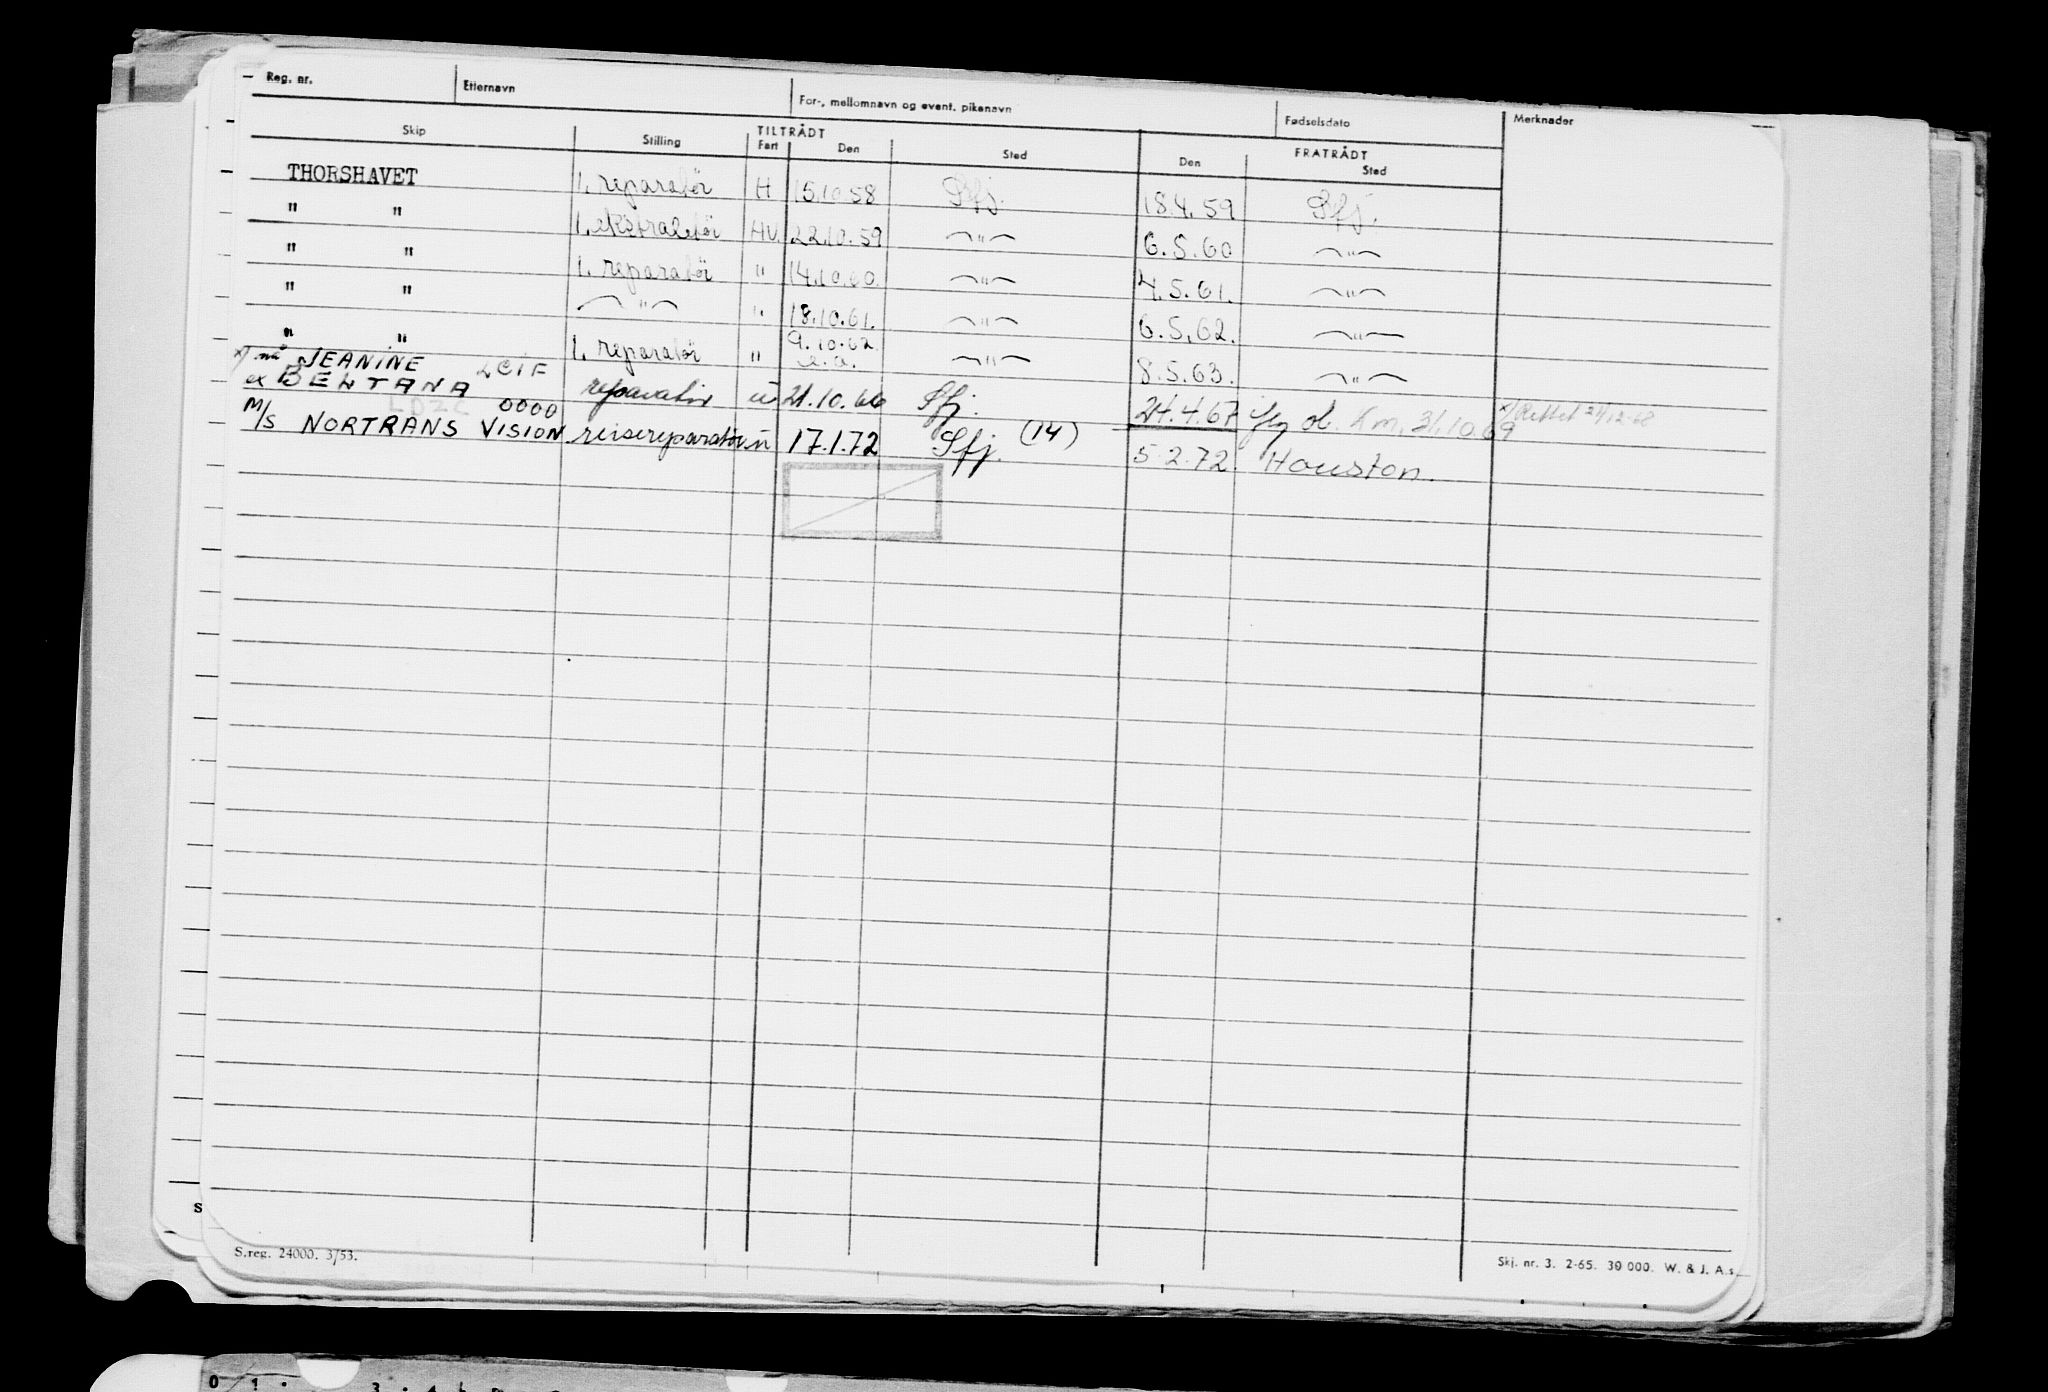 Reg. nr. Etternavn For-, mellomnavn og event. pikenavn Fødselsdato Merknader
Skip Stilling TILTRÅDT FRATRÅDT
Fart Den Sted Den Sted
THORSHAVET 1. reparatør H 15.10.58 Sfj. 18.4.59 Sfj.
" " 1. ekstraletør HV. 22.10.59 —"— 6.5.60 —"—
" " 1. reparatør " 14.10.60. —"— 4.5.61. —"—
" " —"— " 18.10.61. —"— 6.5.62. —"—
" " 1. reparatør " 9.10.62. —"— 8.5.63. —"—
x) nå JEANINE LCIF
ex BELTANA reparatør u 21.10.66 Sfj. 24.4.67 31.10.69 x) Rettet
LDZC 0000
M/S NORTRANS VISION reisereparatør u 17.1.72 Sfj. (14) 5.2.72 Houston.
S.reg. 24000. 3/53. Skj. nr. 3. 2-65. 30 000. W. & J. A.s
0 1 3 4